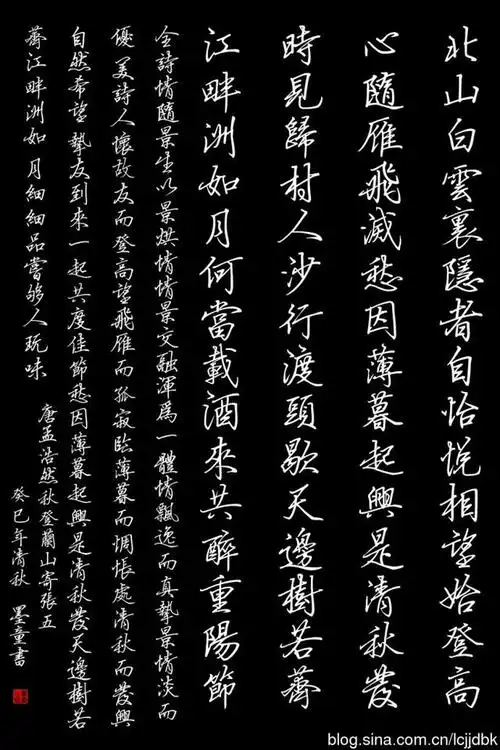 北山白雲裏隱者自怡悅相望始登高
心隨雁飛滅愁因薄暮起興是清秋發
時見歸村人沙行渡頭歇天邊樹若薺
江畔洲如月何當載酒來共醉重陽節
全詩情隨景生以景烘情情景交融渾為一體情飄逸而真摯景情淡而
優美詩人懷故友而登高望飛雁而孤寂臨薄暮而惆悵處清秋而發興
自然希望摯友到來一起共度佳節愁因薄暮起興是清秋發天邊樹若
薺江畔洲如月細細品嘗够人玩味
唐孟浩然秋登蘭山寄張五
癸巳年清秋 墨童書
blog.sina.com.cn/lcjjdbk